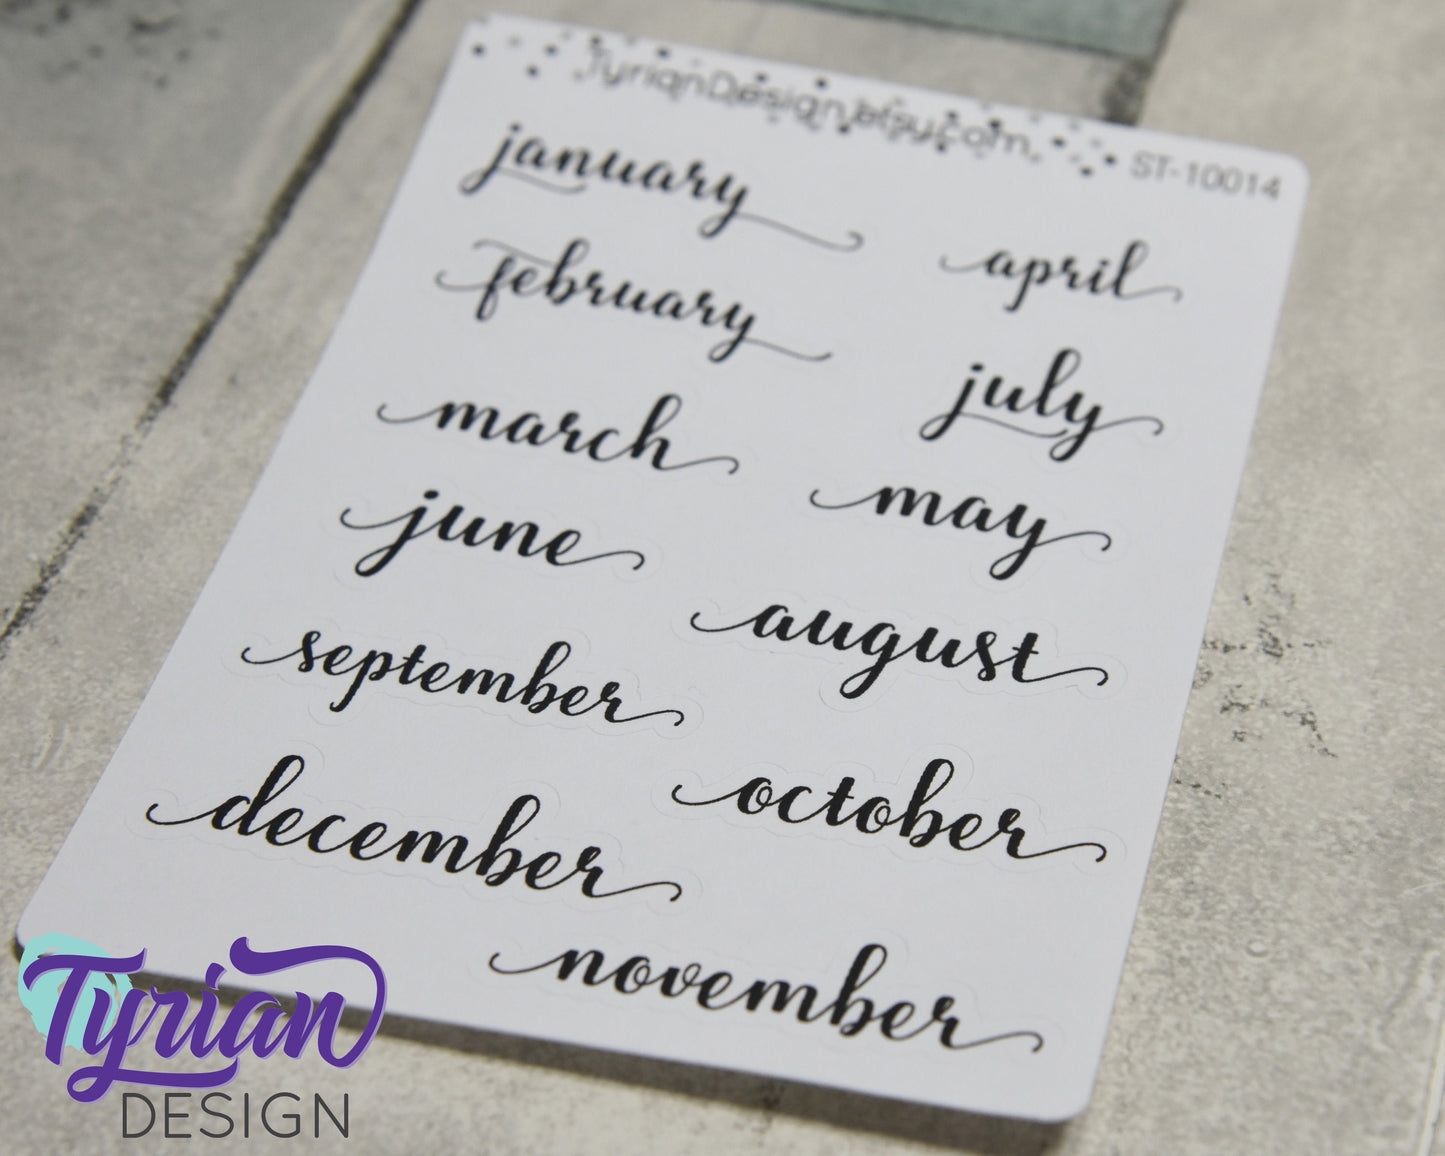 TyrianDesign.etsy.com
ST-10014
january
april
february
july
march
may
june
august
september
october
december
november
Tyrian
DESIGN